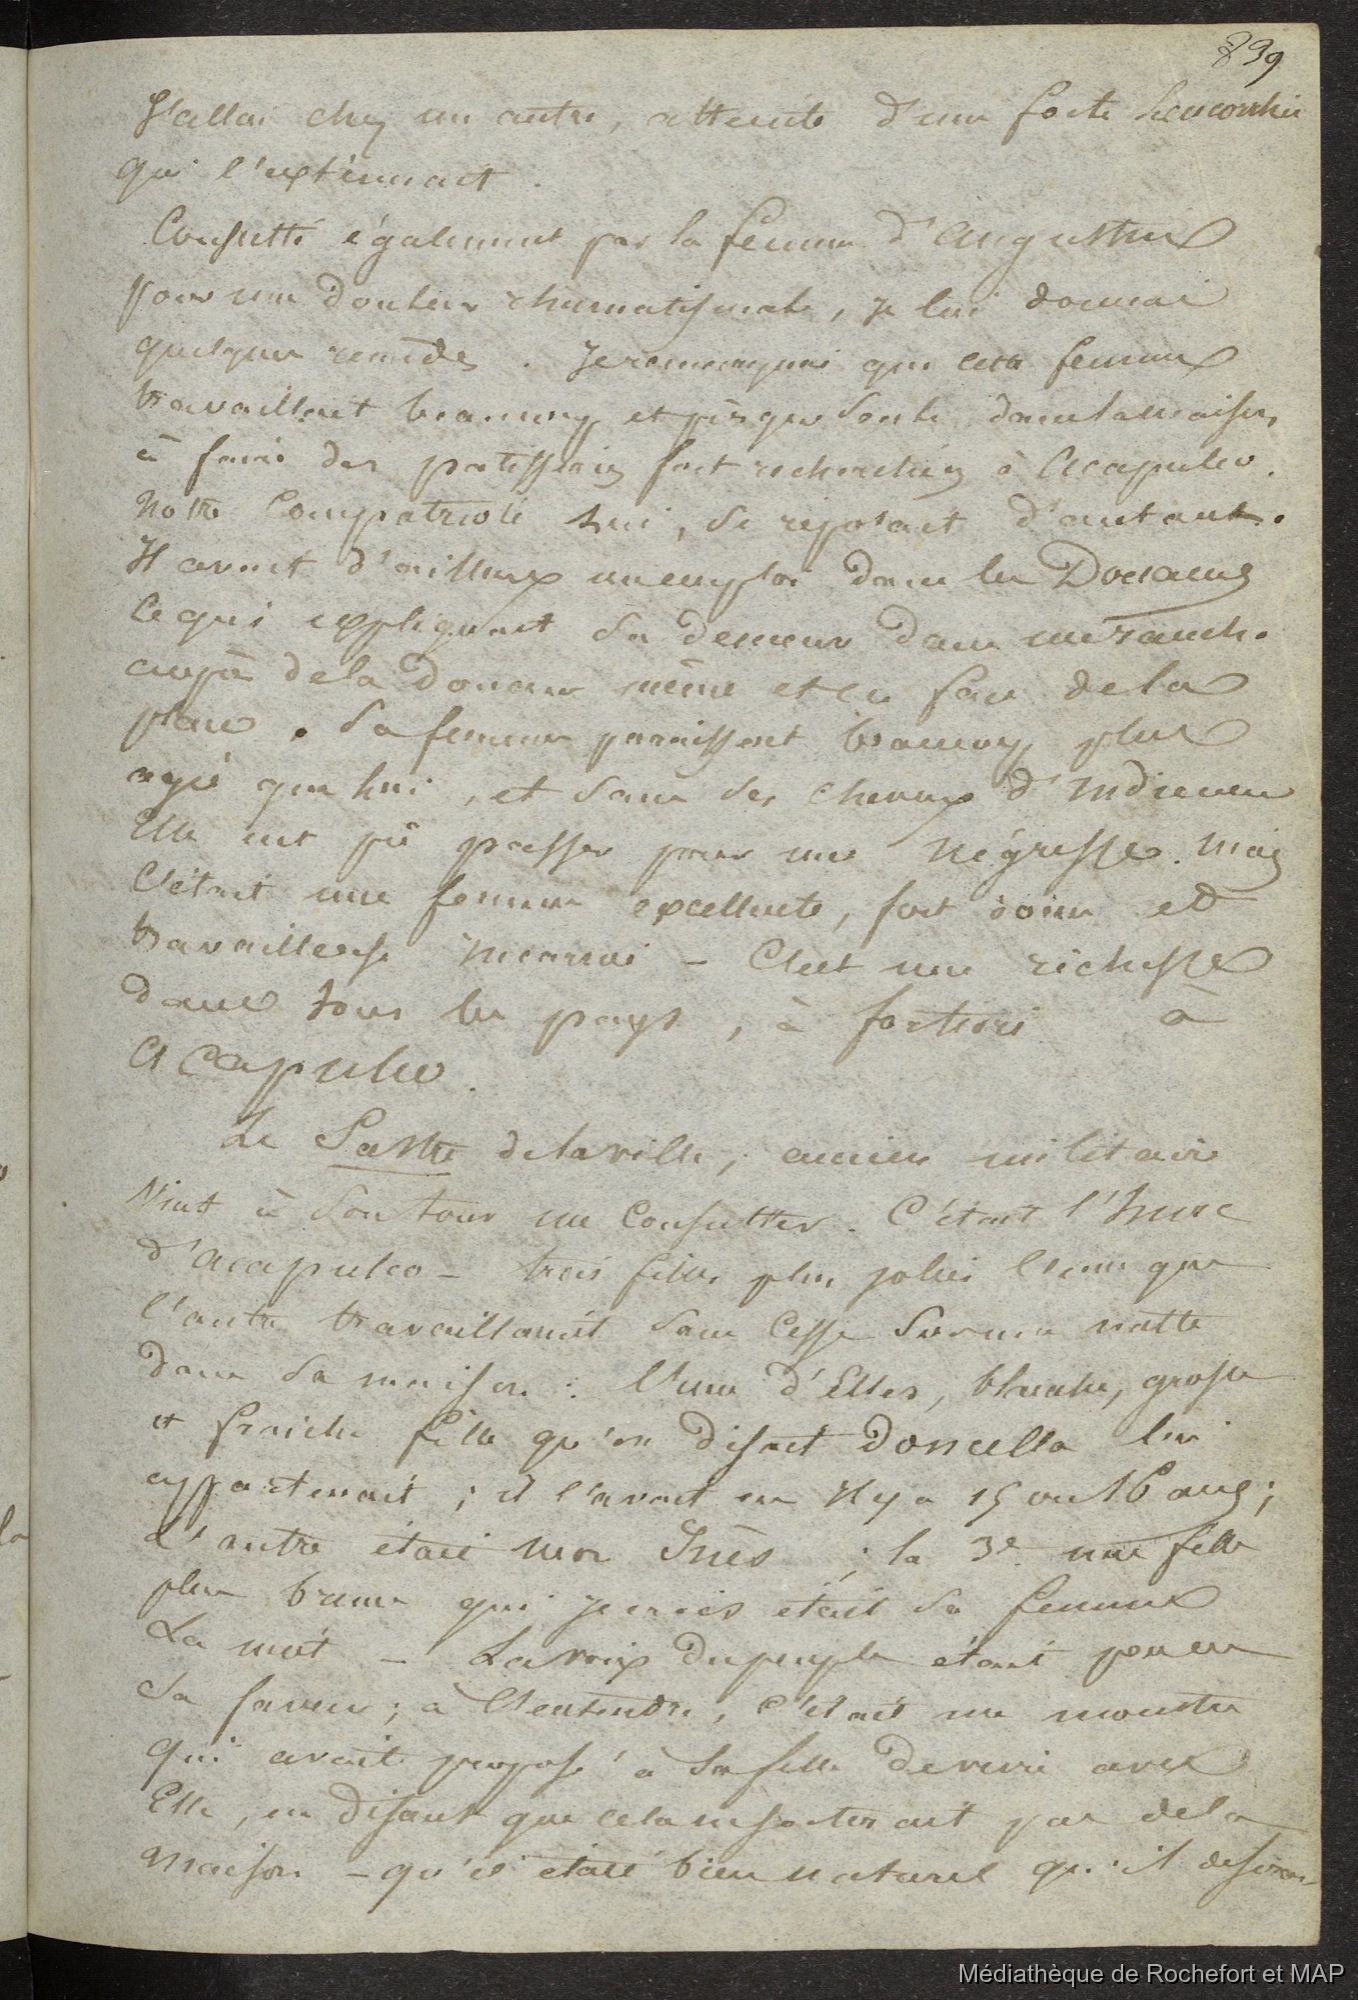 839
J'allai chez un autre, atteinte d'une forte leucorrhée
qui l'exténuait.
Consulté également par la femme d'Augustin
pour une douleur rhumatismale, je lui donnai
quelques remèdes. Je remarquai que cette femme
travaillait beaucoup et presque seule dans la maison,
à faire des patisseries fort recherchées à Acapulco.
Notre Compatriote lui, se reposait d'autant.
Il avait d'ailleurs un emploi dans les Douanes
ce qui expliquait sa demeure dans une ranch.
auprès de la Douane même et en face de la
place. Sa femme paraissait beaucoup plus
agée que lui, et sans ses cheveux d'Indienne
Elle eut pû passer pour une Négresse. Mais
C'était une femme excellente, fort soin et
travailleuse - C'est une richesse
dans tous les pays, à fortiori à
Acapulco.
Le de la ville, ancien militaire
Vint à son tour me Consulter. C'était
d'Acapulco - trois filles plus jolies l'une que
l'autre travaillaient sans Cesse sur une natte
dans sa maison : l'une d'Elles, blanche, grosse
et fraiche fille qu'on disait Doncella lui
appartenait ; il l'avait eu il y a 15 ou 16 ans ;
L'autre était mon Inès ; la 3e. une fille
plus brune qui je crois était sa femme
La voix du peuple était peu en
sa faveur ; à l'entendre, c'était un monstre
qui avait proposé à sa fille de vivre avec
Elle, en disant que cela ne sortirait pas de la
maison - qu'il était bien naturel qu'il
Médiathèque de Rochefort et MAP